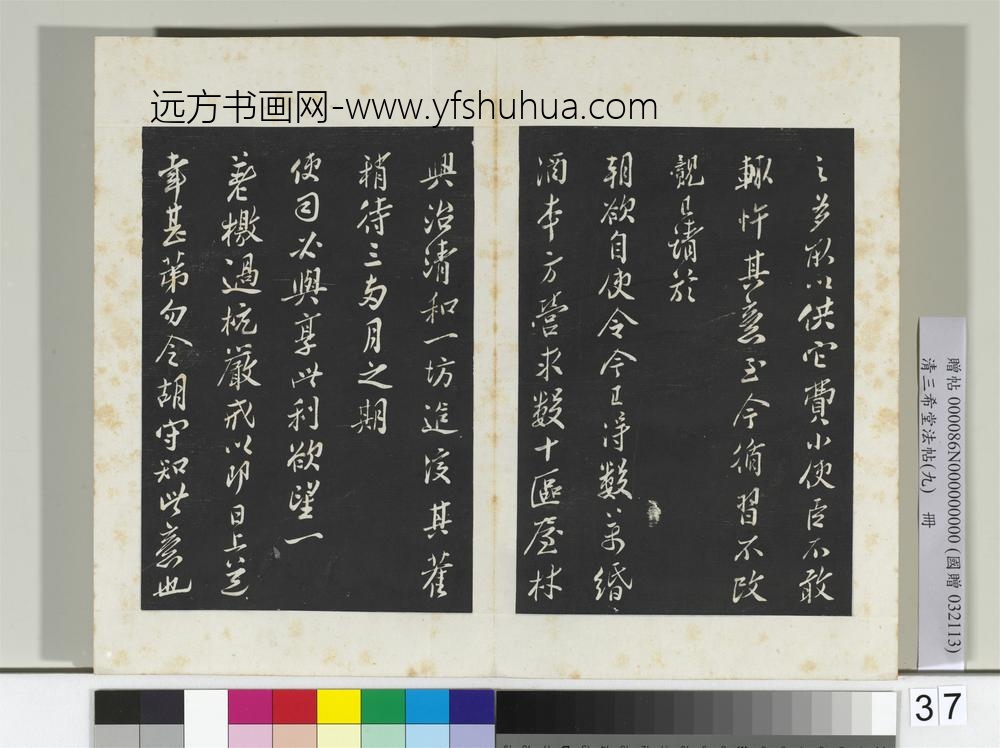 远方书画网-www.yfshuhua.com
之芗所以供它費小使臣不敢
輙忤其意至今循習不改
觀已請於
朝欲自使令今已浮數萬緡
酒本方營求數十區屋材
興治清和一坊迨後其舊
稍待三两月之期
使司必與享此利欲望一
差檄過杭嚴戒以即日上道
幸甚第勿令胡守知此意也
贈帖 0000086N000000000 (國贈 032113)
清三希堂法帖(九) 冊
37